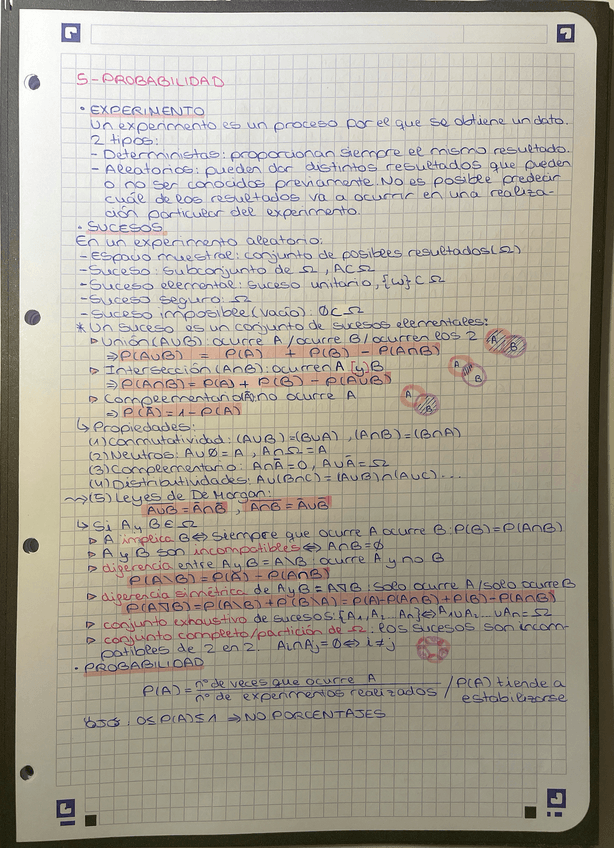 5-PROBABILIDAD
• EXPERIMENTO
Un experimento es un proceso por el que se obtiene un dato.
2 tipos:
- Deterministas: proporcionan siempre el mismo resultado.
- Aleatorios: pueden dar distintos resultados que pueden
o no ser conocidos previamente. No es posible predecir
cuál de los resultados va a ocurrir en una realiza-
ción particular del experimento.
• SUCESOS
En un experimento aleatorio:
- Espacio muestral: conjunto de posibles resultados (Ω)
- Suceso: subconjunto de Ω, A⊂Ω
- Suceso elemental: suceso unitario, {ω}⊂Ω
- Suceso seguro: Ω
- Suceso imposible (vacío): Ø⊂Ω
* Un suceso es un conjunto de sucesos elementales:
▷ Unión (A∪B): ocurre A / ocurre B / ocurren los 2 A B
⇒ P(A∪B) = P(A) + P(B) - P(A∩B)
▷ Intersección (A∩B): ocurren A [y] B A B
⇒ P(A∩B) = P(A) + P(B) - P(A∪B)
▷ Complementario (Ā): no ocurre A A B
⇒ P(Ā) = 1 - P(A)
↳ Propiedades:
(1) Conmutatividad: (A∪B)=(B∪A), (A∩B)=(B∩A)
(2) Neutros: A∪Ø=A, A∩Ω=A
(3) Complementario: A∩Ā=0, A∪Ā=Ω
(4) Distributividades: A∪(B∩C)=(A∪B)∩(A∪C)...
⇝ (5) Leyes de De Morgan:
A̅∪̅B̅ = Ā∩B̄, A̅∩̅B̅ = Ā∪B̄
↳ Si A y B ∈ Ω
▷ A implica B ⇔ Siempre que ocurre A ocurre B: P(B)=P(A∩B)
▷ A y B son incompatibles ⇔ A∩B=Ø
▷ diferencia entre A y B = A\B: ocurre A y no B
P(A\B) = P(A) - P(A∩B)
▷ diferencia simétrica de A y B = A∇B: solo ocurre A / solo ocurre B
P(A∇B) = P(A\B) + P(B\A) = P(A)-P(A∩B)+P(B)-P(A∩B)
▷ conjunto exhaustivo de sucesos: {A₁, A₂...An} ⇔ A₁∪A₂...∪An=Ω
▷ conjunto completo/partición de Ω: los sucesos son incom-
patibles de 2 en 2. Ai∩Aj=Ø ⇔ i≠j
• PROBABILIDAD
P(A) = nº de veces que ocurre A / nº de experimentos realizados / P(A) tiende a
estabilizarse
OJO: 0≤P(A)≤1 ⇒ NO PORCENTAJES